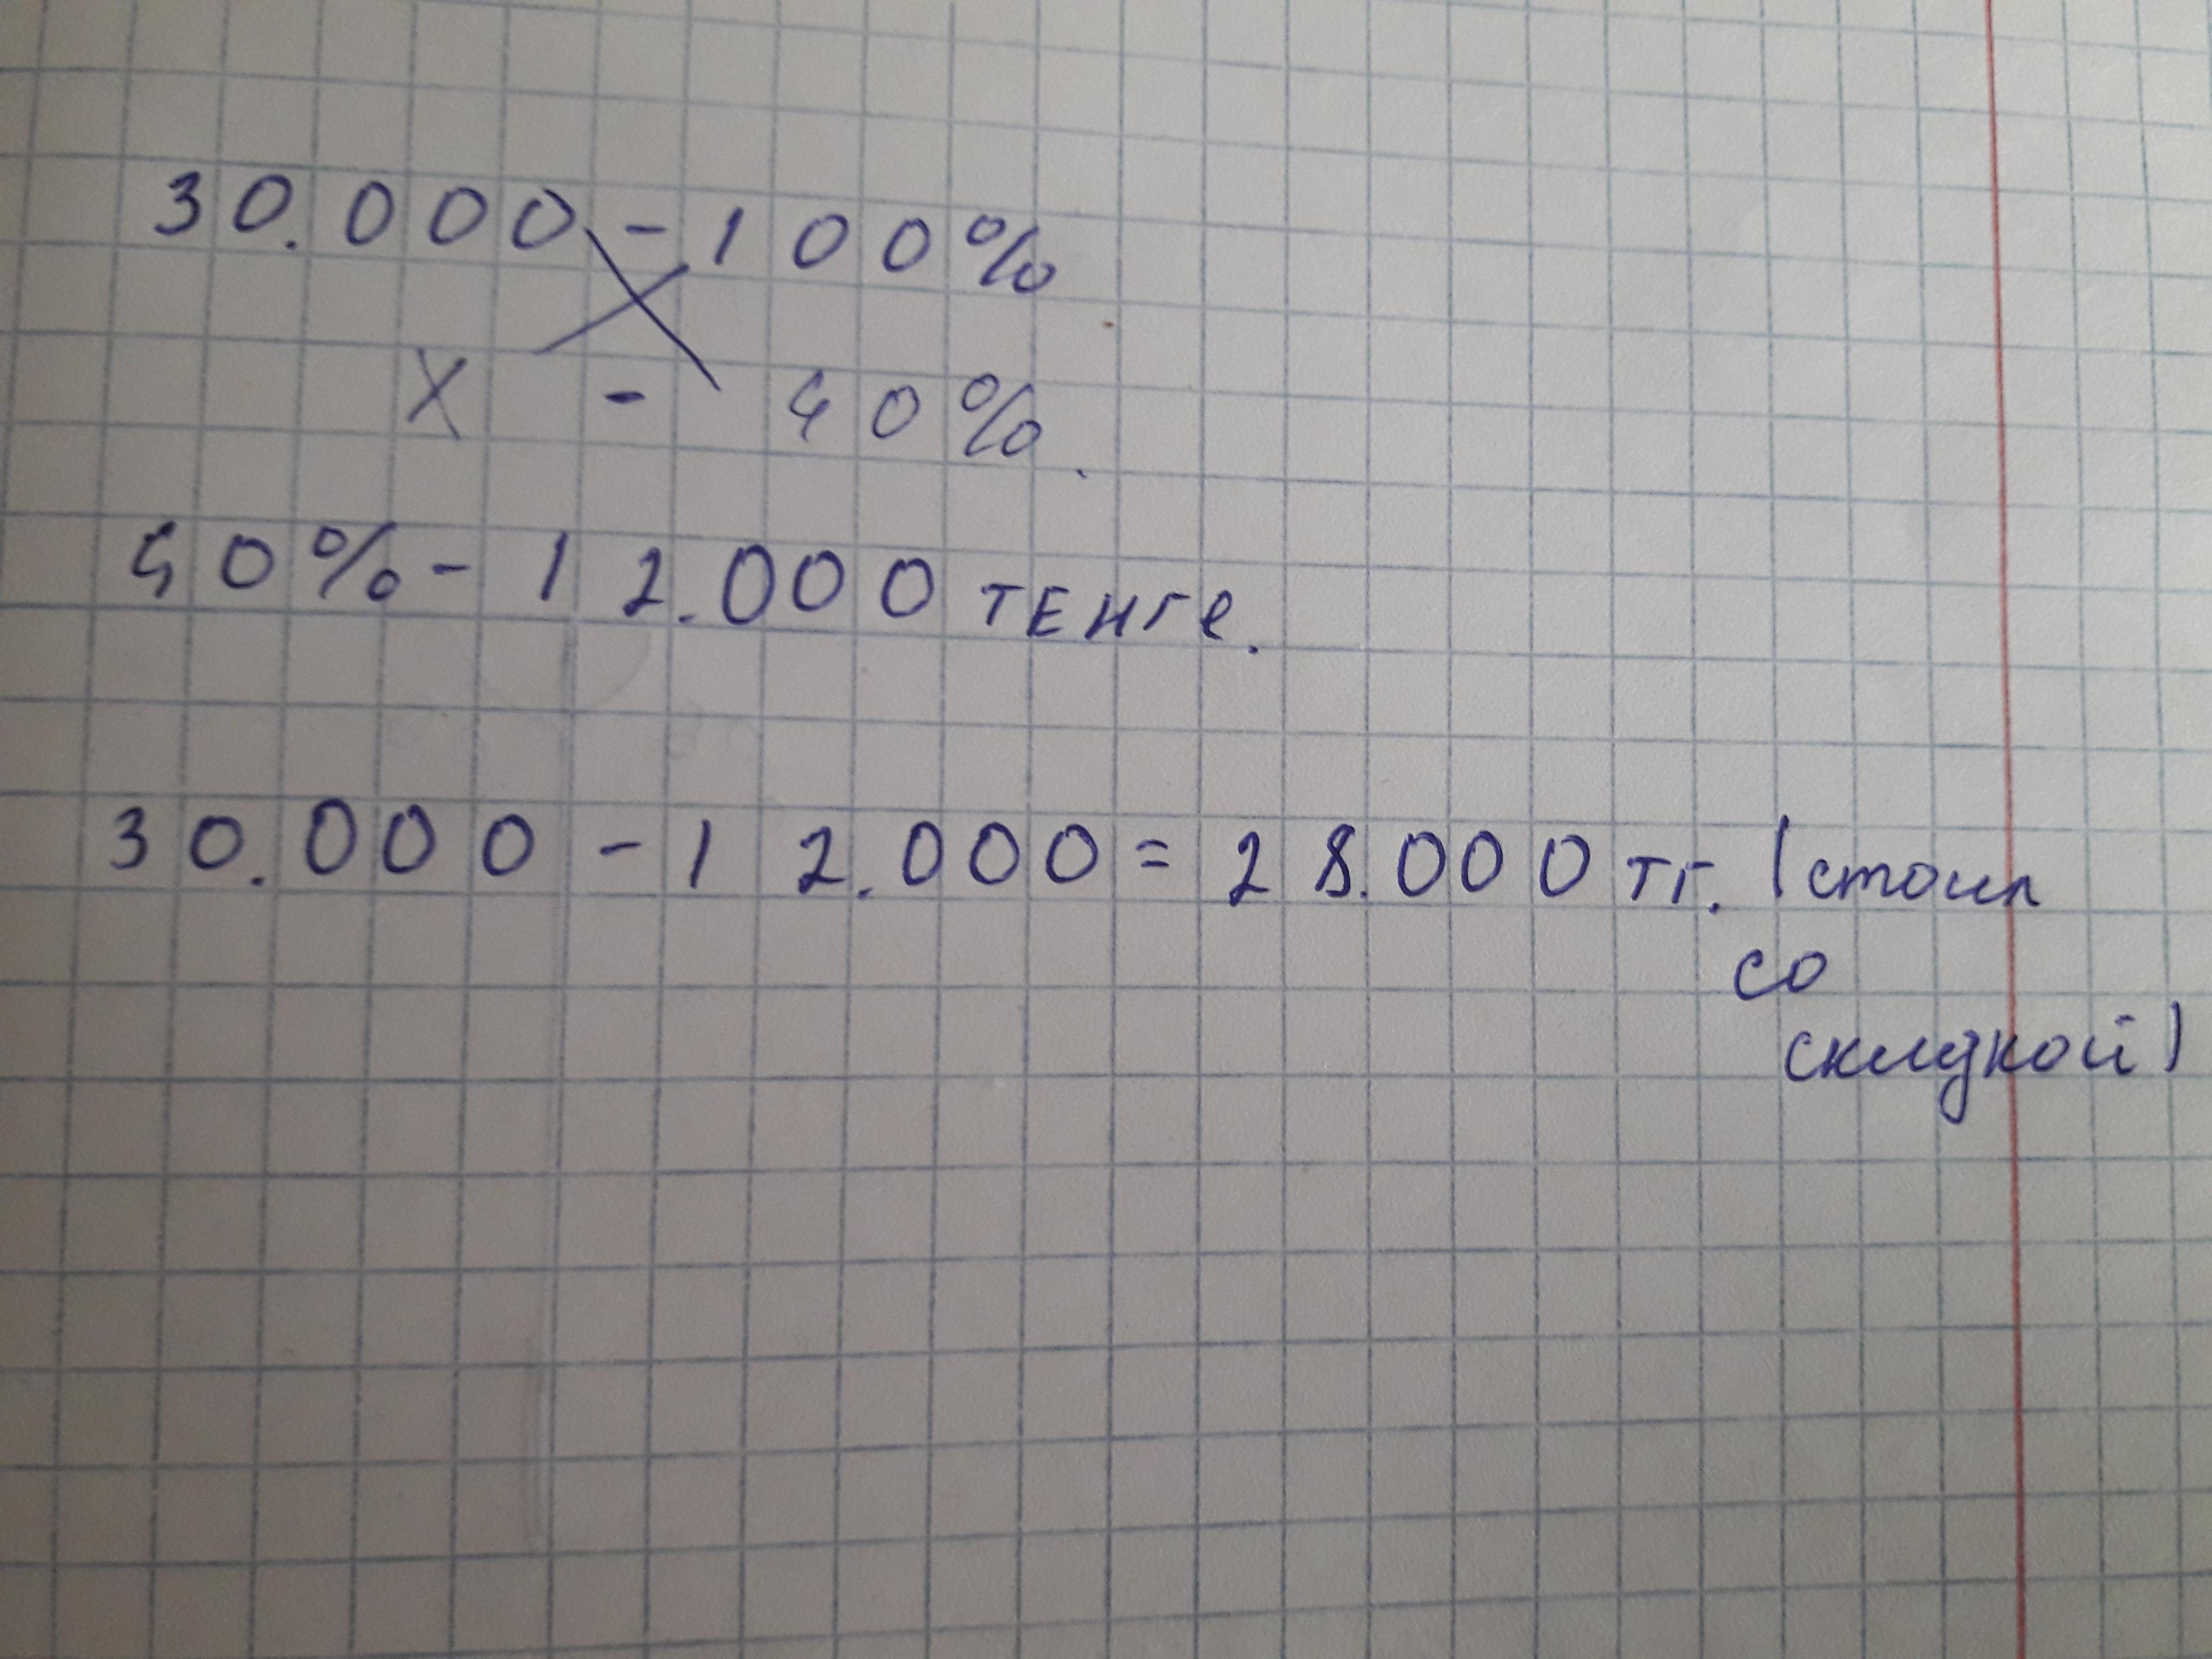 30.000 - 100%
X - 40%.
40% - 12.000 тенге.
30.000 - 12.000 = 28.000 тг. (стоил
со
скидкой)